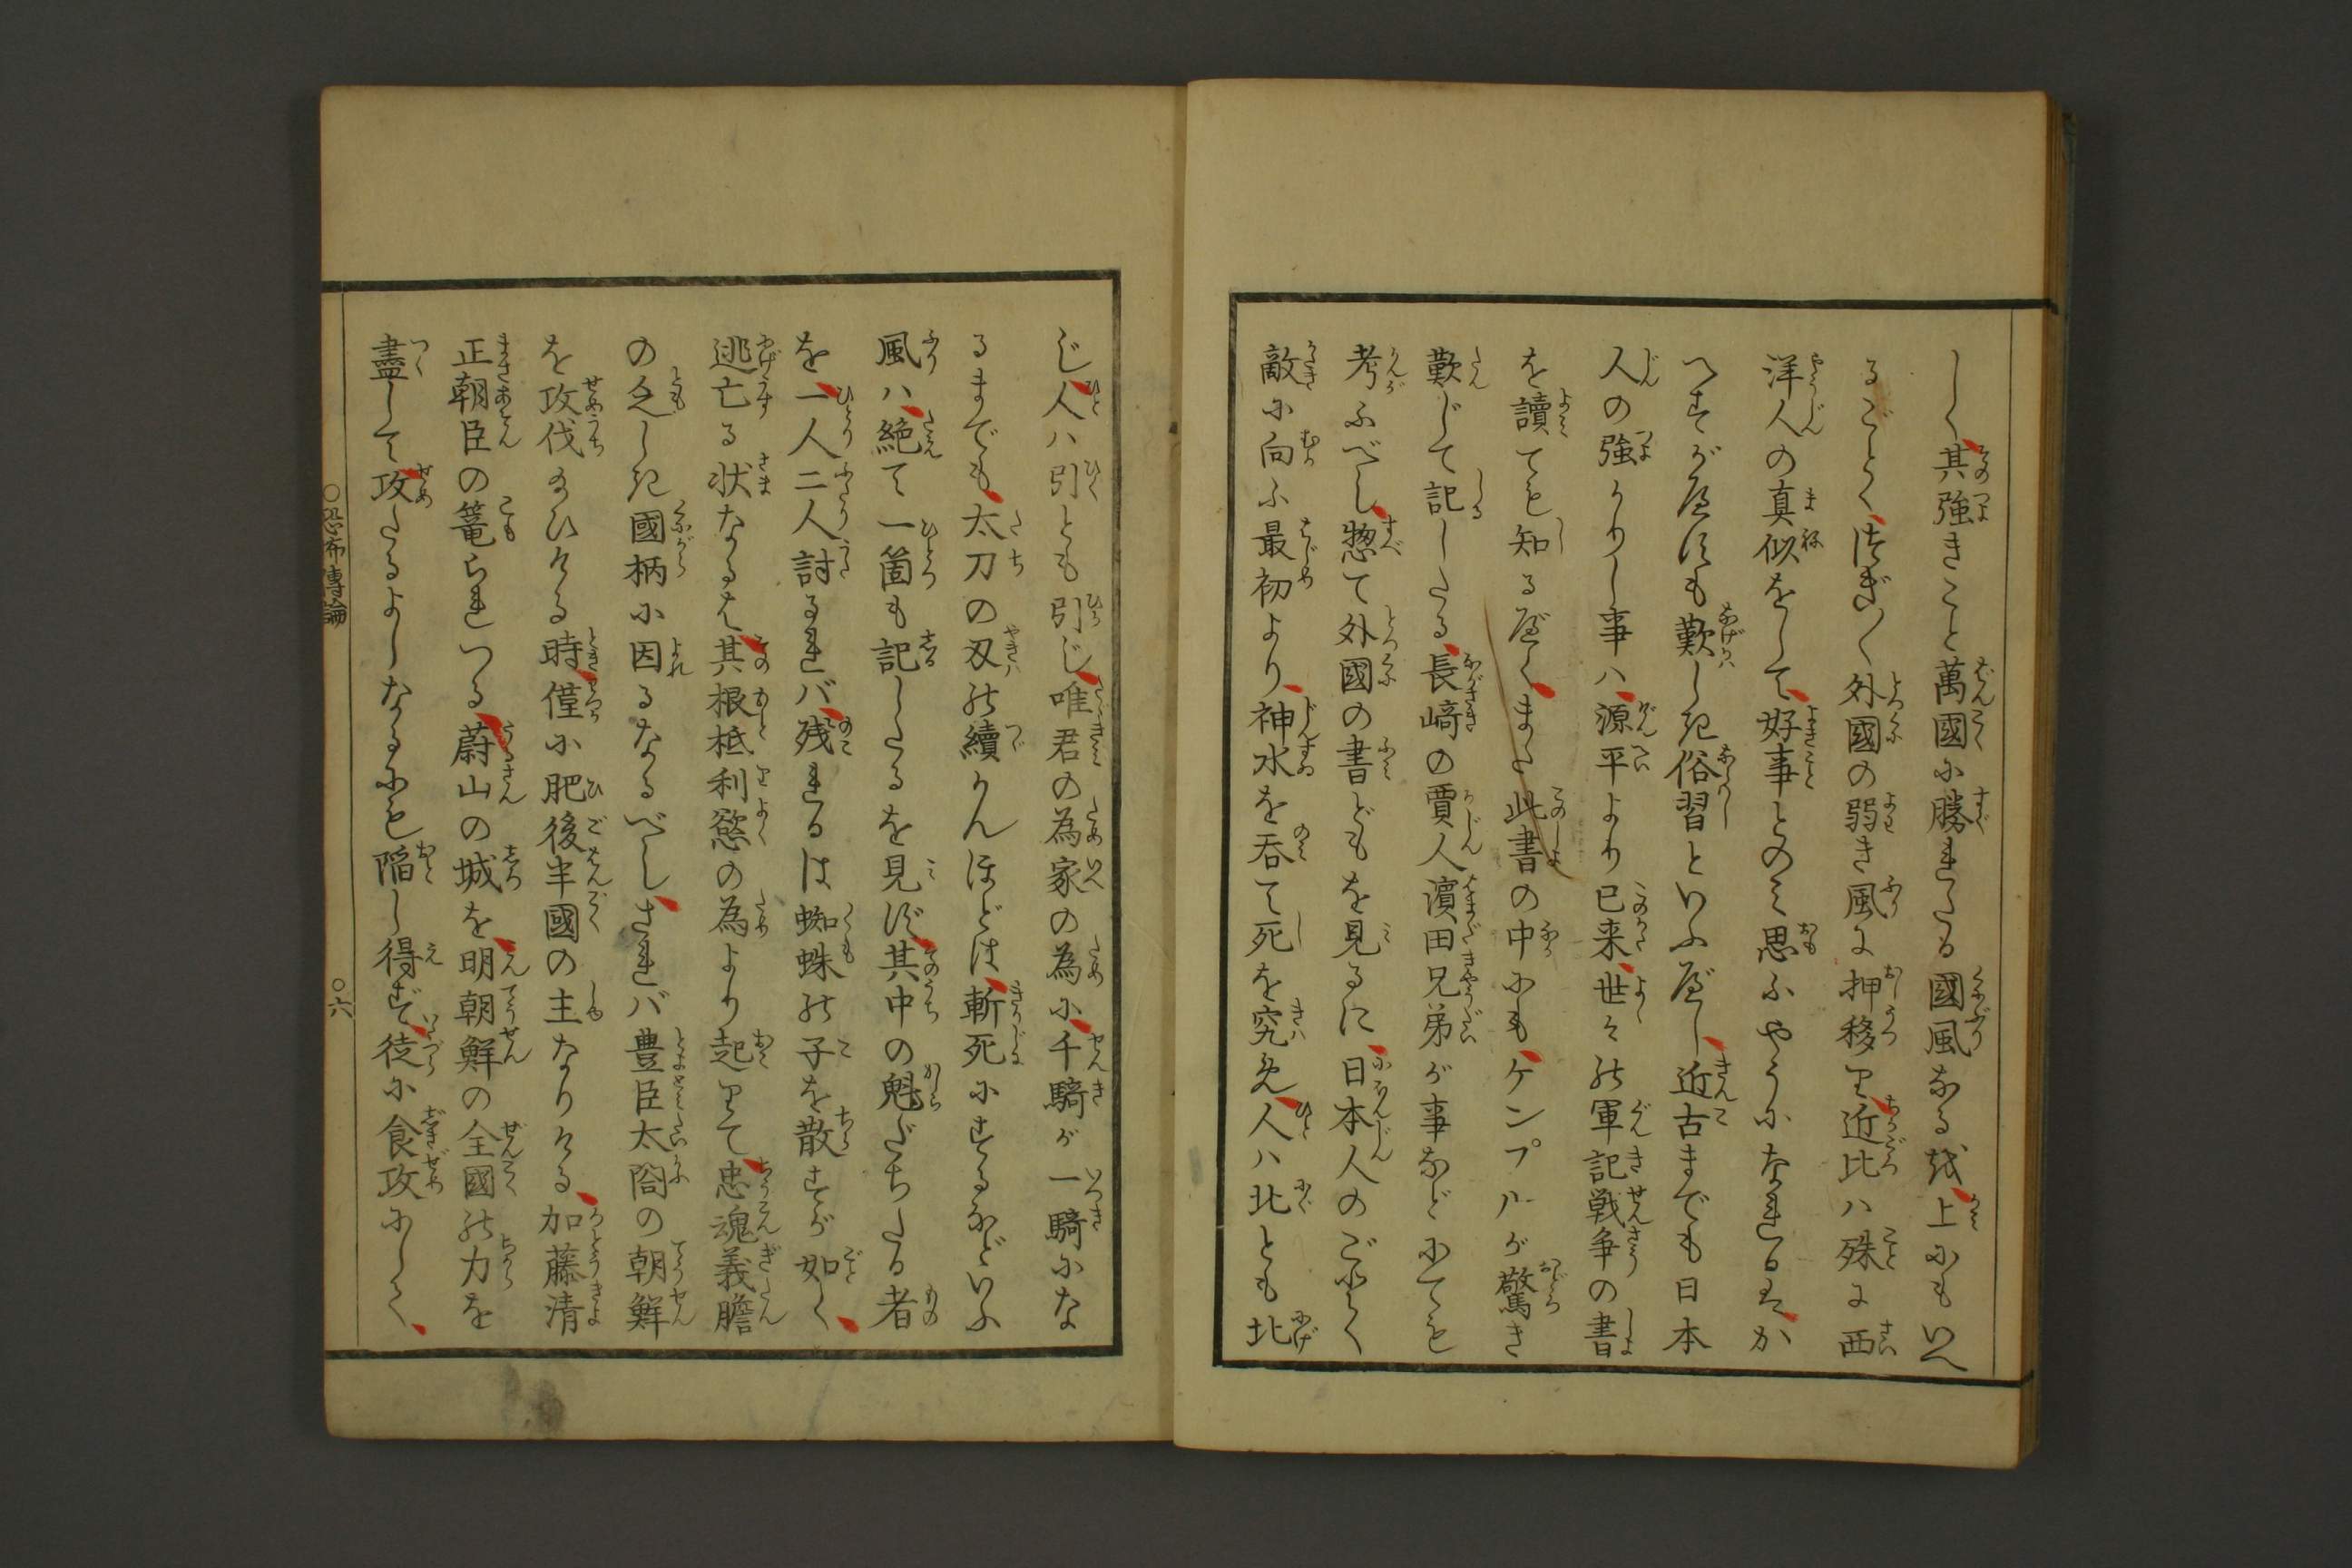 しく其強きこと萬國に勝れたる國風なる故上にもいへ
るごとくつぎ〳〵外國の弱き風に押移り近比ハ殊に西
洋人の真似をして好事とのミ思ふやうになれるハか
へすがへすも歎しき俗習といふべし近古までも日本
人の強かりし事ハ源平より已来世々の軍記戦争の書
を讀ても知るべくまた此書の中にもケンプルが驚き
歎じて記したる長﨑の賈人濵田兄弟が事などにても
考ふべし惣て外國の書どもを見るに日本人のごとく
敵に向ふ最初より神水を呑て死を究め人ハ北とも北
じ人ハ引とも引じ唯君の為家の為に千騎が一騎にな
るまでも太刀の刄の續かんほどは斬死にするなどいふ
風ハ絶て一箇も記したるを見ず其中の魁だちたる者
を一人二人討るれバ残れるは蜘蛛の子を散すが如く
逃亡る状なるは其根柢利慾の為より起りて忠魂義膽
の乏しき國柄に因るなるべしされバ豊臣太閤の朝鮮
を攻伐給ひける時僅に肥後半國の主なりける加藤清
正朝臣の篭られつる蔚山の城を明朝鮮の全國の力を
盡して攻たるよしなるにも陥し得ず徒に食攻にしく
○恐布傳論
○六